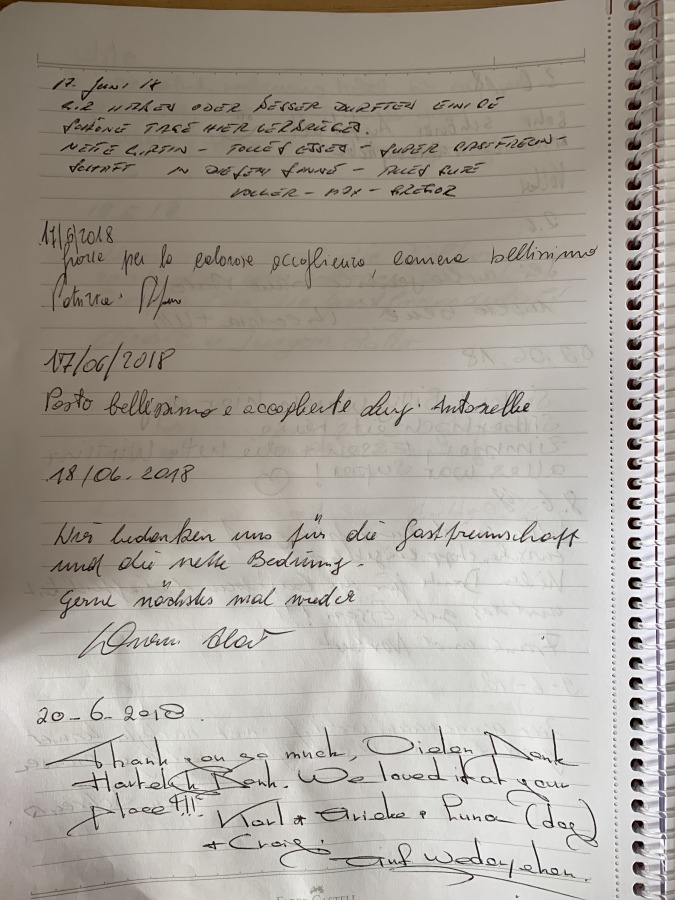 17. Juni 18
WIR HABEN ODER BESSER DURFTEN EINIGE
SCHÖNE TAGE HIER VERBRINGEN.
NETTE WIRTIN - TOLLES ESSEN - SUPER GASTFREUN-
SCHAFT IN DIESEM SINNE - ALLES GUTE
VOLKER - MAX - GREGOR
17/6/2018
Grazie per la calorosa accoglienza, camera bellissima
Patrizia
17/06/2018
Posto bellissimo e accogliente Antonella
18/06.2018
Wir bedanken uns für die Gastfreunschaft
und die nette Bedinung.
Gerne nächstes mal wieder
20-6-2018.
Thank you so much, Vielen Dank
Hartelijk Dank. We loved it at your
place!!!
Karl + + Luna (dog)
+ Craig.
Auf
FABER-CASTELL